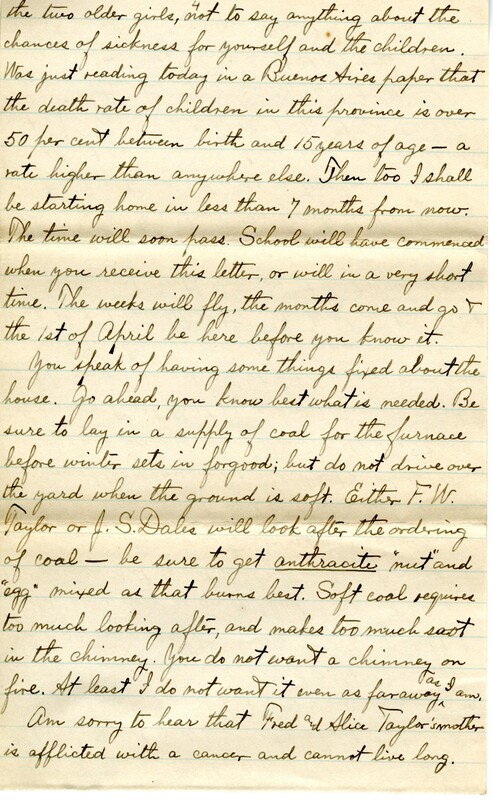 the two older girls, not to say anything about the
chances of sickness for yourself and the children.
Was just reading today in a Buenos Aires paper that
the death rate of children in this province is over
50 per cent between birth and 15 years of age — a
rate higher than anywhere else. Then too I shall
be starting home in less than 7 months from now.
The time will soon pass. School will have commenced
when you receive this letter, or will in a very short
time. The weeks will fly, the months come and go &
the 1st of April be here before you know it.
You speak of having some things fixed about the
house. Go ahead, you know best what is needed. Be
sure to lay in a supply of coal for the furnace
before winter sets in forgood; but do not drive over
the yard when the ground is soft. Either F. W.
Taylor or J. S. Dales will look after the ordering
of coal — be sure to get anthracite "nut" and
"egg" mixed as that burns best. Soft coal requires
too much looking after, and makes too much soot
in the chimney. You do not want a chimney on
fire. At least I do not want it even as far away as I am.
Am sorry to hear that Fred and Alice Taylor's mother
is afflicted with a cancer and cannot live long.